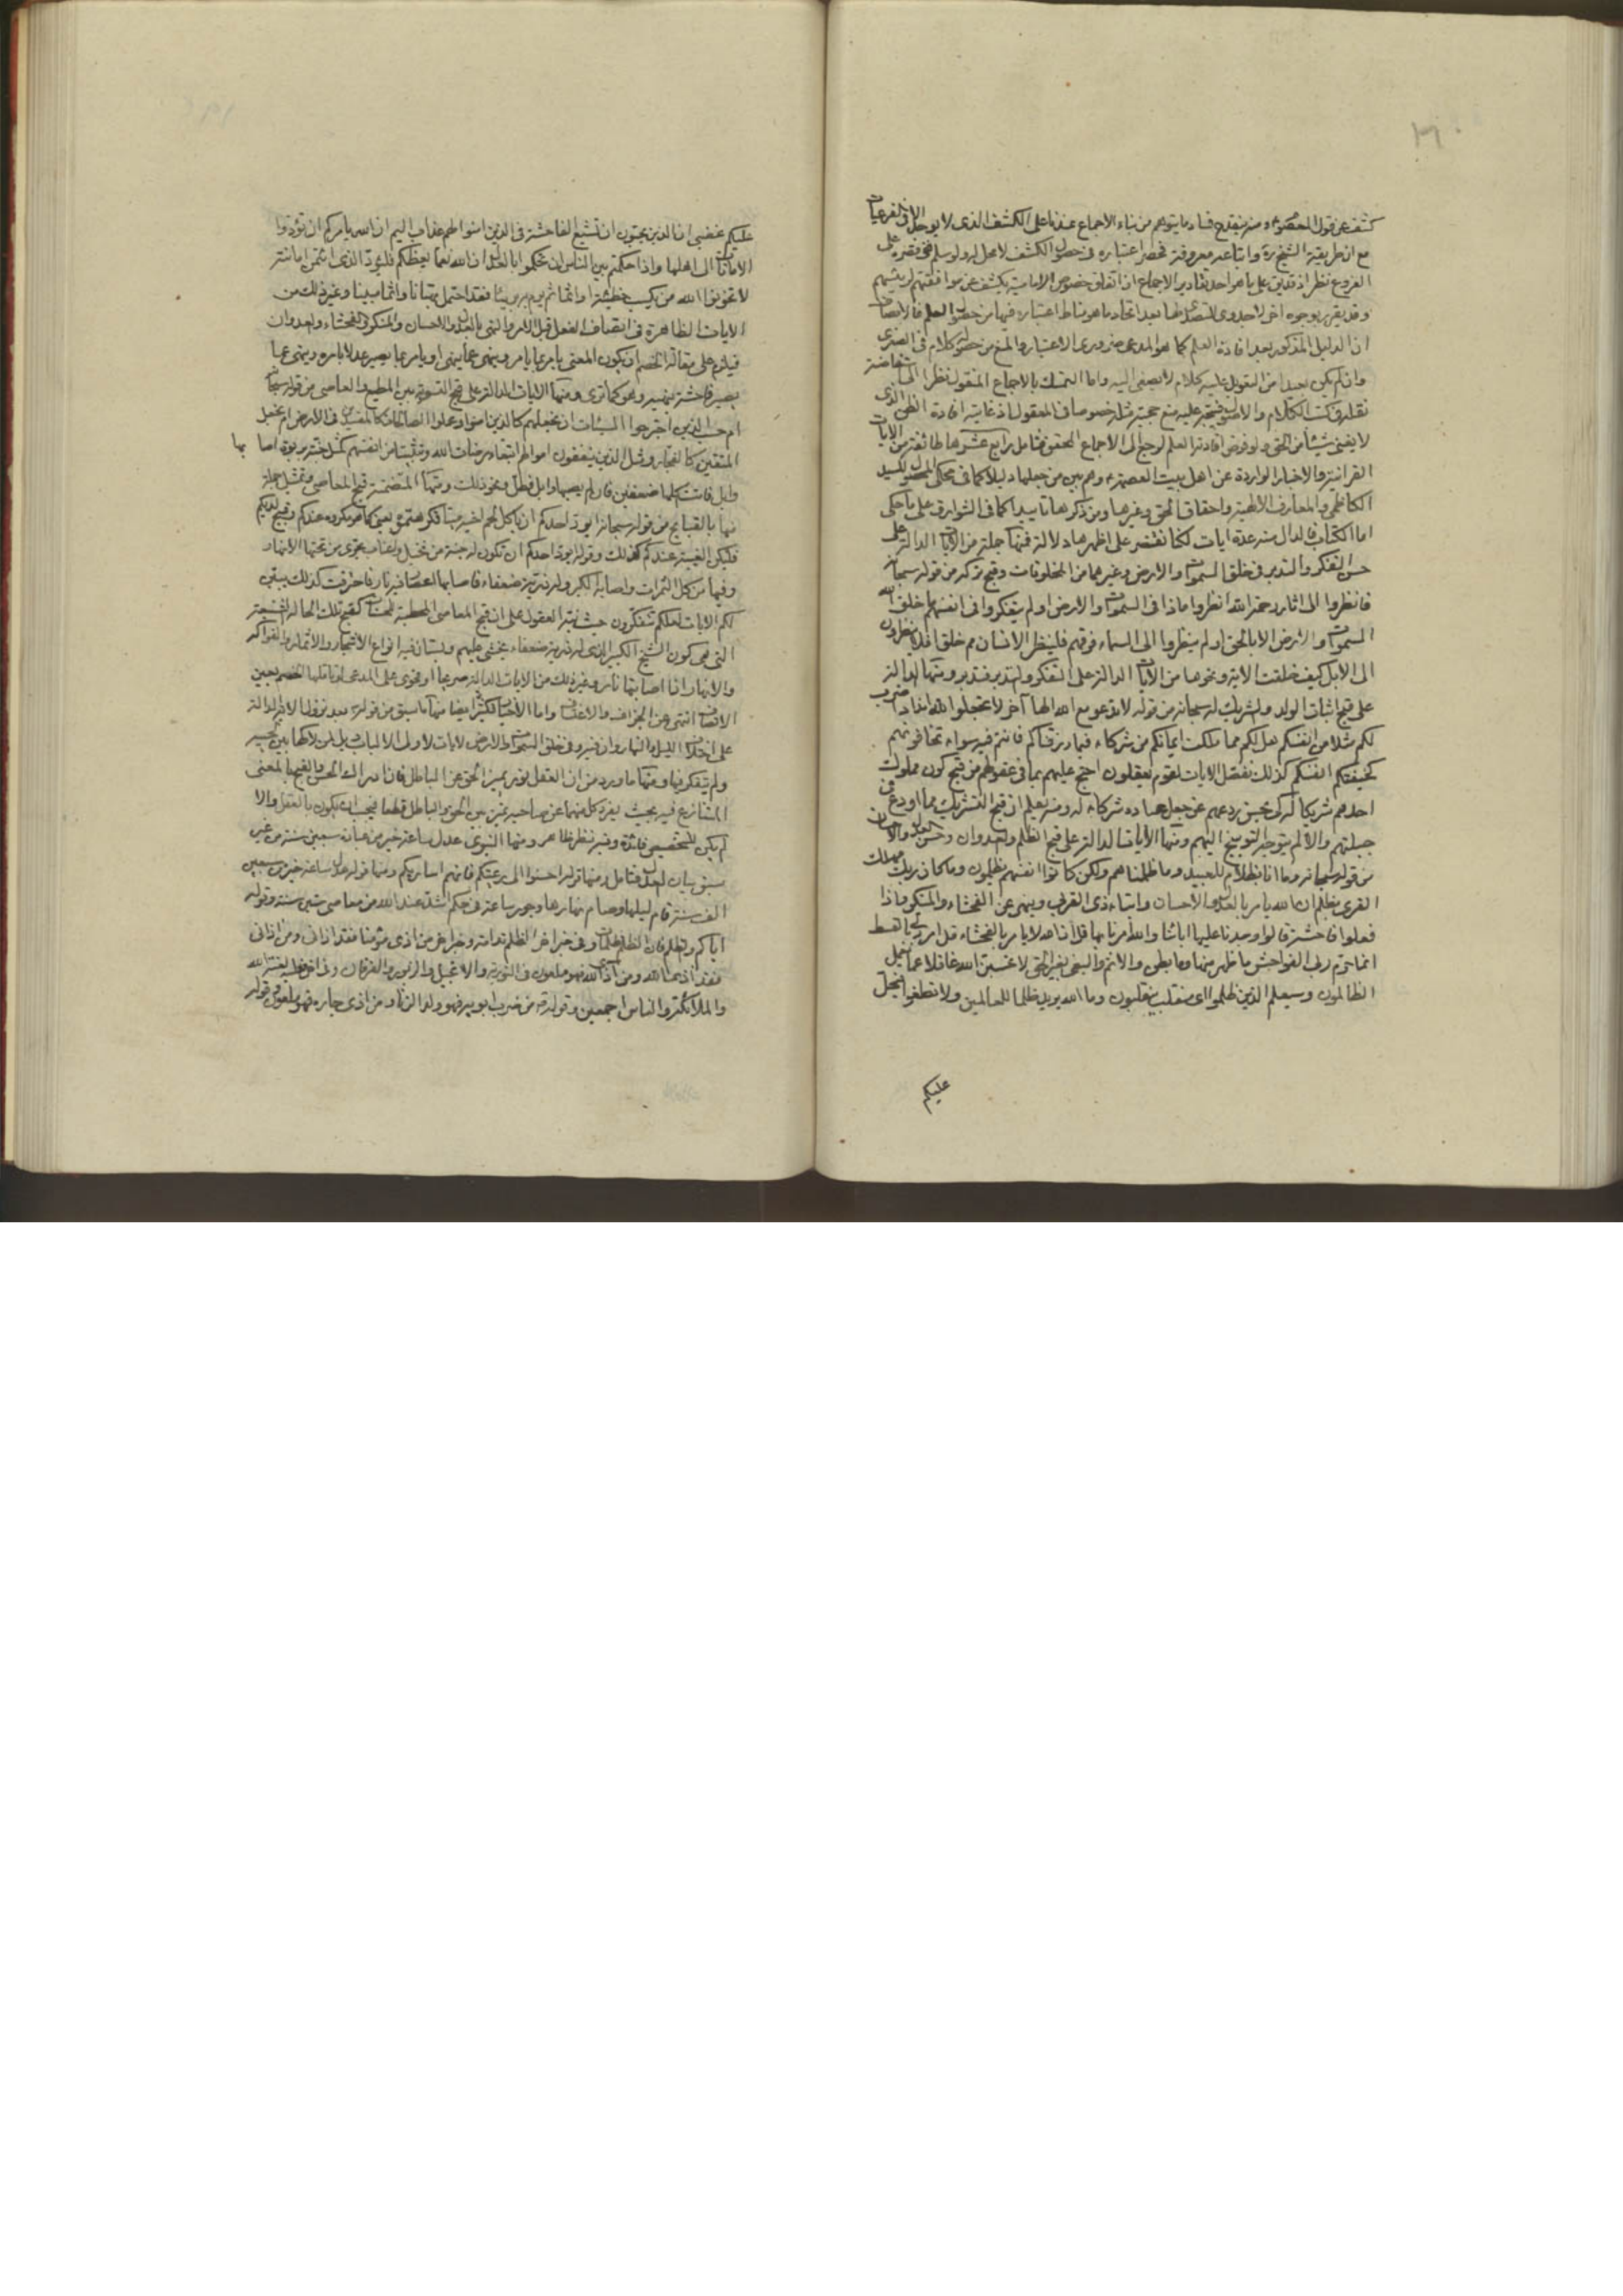 كشف عن قول المعصوم ومنه ينقدح فساد ما يتوهم من بناء الاجماع عندنا على الكشف الذى لا يوجد الا فى الفرعيات
مع ان طريقة الشيخ ره واتباعه معروفة فحصر اعتباره فى حصول الكشف لا محل له ولو سلم فى
الفروع نظرا
وقد يقرر بوجوه اخر لا جدوى للتعرض لها بعد اتحاد ما هو مناط اعتباره فيها من حصول العلم فالانصاف
ان الدليل المذكور بعد افادة العلم كما هو المدعى ضرورى الاعتبار والمنع من حصوله كلام فى الصغرى
وان لم يكن بعيدا من التعويل عليه كلام لا يصغى اليه واما التمسك بالاجماع المنقول نظرا الى استفاضة
نقله فى كتب الكلام والاصول فيتجه عليه منع حجية مثله خصوصا فى المعقول اذ غايته افادة الظن الذى
لا يغنى شيئا من الحق ولو فرض افادته العلم لرجع الى الاجماع المحقق فتامل رابع عشرها طائفة من الايات
القرانية والاخبار الواردة عن اهل بيت العصمة ع وهم بين من جعلها دليلا كما فى محكى المحصول للسيد
الكاظمى والمعارف الالهية واحقاق الحق وغيرها ومن ذكرها تاييدا كما فى الشوارق على ما حكى
اما الكتاب فالدال منه عدة ايات لكنا نقتصر على اظهرها دلالة فمنها جملة من الايات الدالة على
حسن التفكر والتدبر فى خلق السموات والارض وغيرهما من المخلوقات وقبح تركه من قوله سبحانه
فانظروا الى اثار رحمة الله انظروا ماذا فى السموات والارض اولم يتفكروا فى انفسهم ما خلق الله
السموات والارض الا بالحق اولم ينظروا الى السماء فوقهم فلينظر الانسان مم خلق افلا ينظرون
الى الابل كيف خلقت الاية ونحوها من الايات الدالة على التفكر والتدبر فتدبر ومنها الدالة
على قبح اثبات الولد والشريك له سبحانه من قوله لا تدعو مع الله الها آخر لا تجعلوا لله اندادا ضرب
لكم مثلا من انفسكم هل لكم مما ملكت ايمانكم من شركاء فيما رزقناكم فانتم فيه سواء تخافونهم
كخيفتكم انفسكم كذلك نفصل الايات لقوم يعقلون احتج عليهم بما فى عقولهم من قبح كون مملوك
احدهم شريكا له كى يحسن ردعهم عن جعل عباده شركاء له ومنه يعلم ان قبح التشريك مما اودع فى
جبلتهم والا لم يتوجه التوبيخ اليهم ومنها الايات الدالة على قبح الظلم والعدوان وحسن العدل والاحسان
من قوله سبحانه وما انا بظلام للعبيد وما ظلمناهم ولكن كانوا انفسهم يظلمون وما كان ربك مهلك
القرى بظلم ان الله يامر بالعدل والاحسان وايتاء ذى القربى وينهى عن الفحشاء والمنكر واذا
فعلوا فاحشة قالوا وجدنا عليها ابائنا والله امرنا بها قل ان الله لا يامر بالفحشاء قل امر ربى بالقسط
انما حرم ربى الفواحش ما ظهر منها وما بطن والاثم والبغى بغير الحق لا تحسبن الله غافلا عما يعمل
الظالمون وسيعلم الذين ظلموا اى منقلب ينقلبون وما الله يريد ظلما للعالمين ولا تطغوا فيحل
عليكم
عليكم غضبى ان الذين يحبون ان تشيع الفاحشة فى الذين امنوا لهم عذاب اليم ان الله يامركم ان تؤدوا
الامانات الى اهلها واذا حكمتم بين الناس ان تحكموا بالعدل ان الله نعما يعظكم فليؤد الذى اؤتمن امانته
لا تخونوا الله من يكسب خطيئة او اثما ثم يرم به بريئا فقد احتمل بهتانا واثما مبينا وغير ذلك من
الايات الظاهرة فى اتصاف الفعل قبل الامر والنهى بالعدل والاحسان والمنكر والفحشاء والعدوان
فيلزم على مقالة الخصم ان يكون المعنى يامر بما يامر وينهى عما ينهى او يامر بما يصير عدلا بامره وينهى عما
يصير فاحشة بنهيه وهو كما ترى ومنها الايات الدالة على قبح التسوية بين المطيع والعاصى من قوله سبحانه
ام حسب الذين اجترحوا السيئات ان نجعلهم كالذين امنوا وعملوا الصالحات كالمفسدين فى الارض ام نجعل
المتقين كالفجار ومثل الذين ينفقون اموالهم ابتغاء مرضات الله وتثبيتا من انفسهم كمثل جنة بربوة اصابها
وابل فاتت اكلها ضعفين فان لم يصبها وابل فطل ونحو ذلك ومنها المتضمنة قبح المعاصى وتمثيل جملة
منها بالقبايح من قوله سبحانه ايود احدكم ان ياكل لحم اخيه ميتا فكرهتموه يعنى كما هو مكروه عندكم وقبيح لديكم
فليكن الغيبة عندكم كذلك وقوله ايود احدكم ان تكون له جنة من نخيل واعناب تجرى من تحتها الانهار
وفيها من كل الثمرات واصابه الكبر وله ذرية ضعفاء فاصابها اعصار فيه نار فاحترقت كذلك يبين
لكم الايات لعلكم تتفكرون حيث نبه العقول على ان قبح المعاصى المحبطة للحسنات كقبح تلك الحالة
التى هى كون الشيخ الكبير الذى له ذرية ضعفاء يخشى عليهم وبستان فيه انواع الاشجار والاثمار والفواكه
والانهار اذا اصابتها نار وغير ذلك من الايات الدالة صريحا او فحوى على المدعى لو تاملها الخصم بعين
الانصاف انتهى عن الجزاف والاعتساف واما الاخبار فكثير ايضا منها ما سبق من قوله ص بعد نزول الاية الدالة
على اختلاف الليل والنهار وان فيه وفى خلق السموات والارض لايات لاولى الالباب ويل لمن لاكها بين لحييه
ولم يتفكر فيها ومنها ما ورد من ان العقل نور يميز الحق عن الباطل فان ادراك الحسن والقبح بالمعنى
المتنازع فيه بحيث يفرق كلا منهما عن صاحبه تميز بين الحق والباطل قطعا فيجب ان يكون بالعقل والا
لم يكن للتخصيص فائدة وفيه نظر ظاهر ومنها النبوى عدل ساعة خير من عبادة سبعين سنة من غير
سبق بيان لعدل فتامل ومنها قوله احسنوا الى رعيتكم فانهم اساريكم ومنها قوله عدل ساعة خير من سبعين
الف سنة قام ليلها وصام نهارها وجور ساعة فى حكم اشد عند الله من معاصى ستين سنة وقوله
اياكم والظلم فان الظلم ظلمات وفى خبر اخر الظلم ندامة وخبر اخر من اذى مؤمنا فقد اذانى ومن اذانى
فقد اذى الله ومن آذى الله فهو ملعون فى التورية والانجيل والزبور والفرقان وفى اخر فعليه لعنة الله
والملائكة والناس اجمعين وقوله من ضرب ابويه فهو ولد الزنا ومن اذى جاره فهو ملعون وقوله